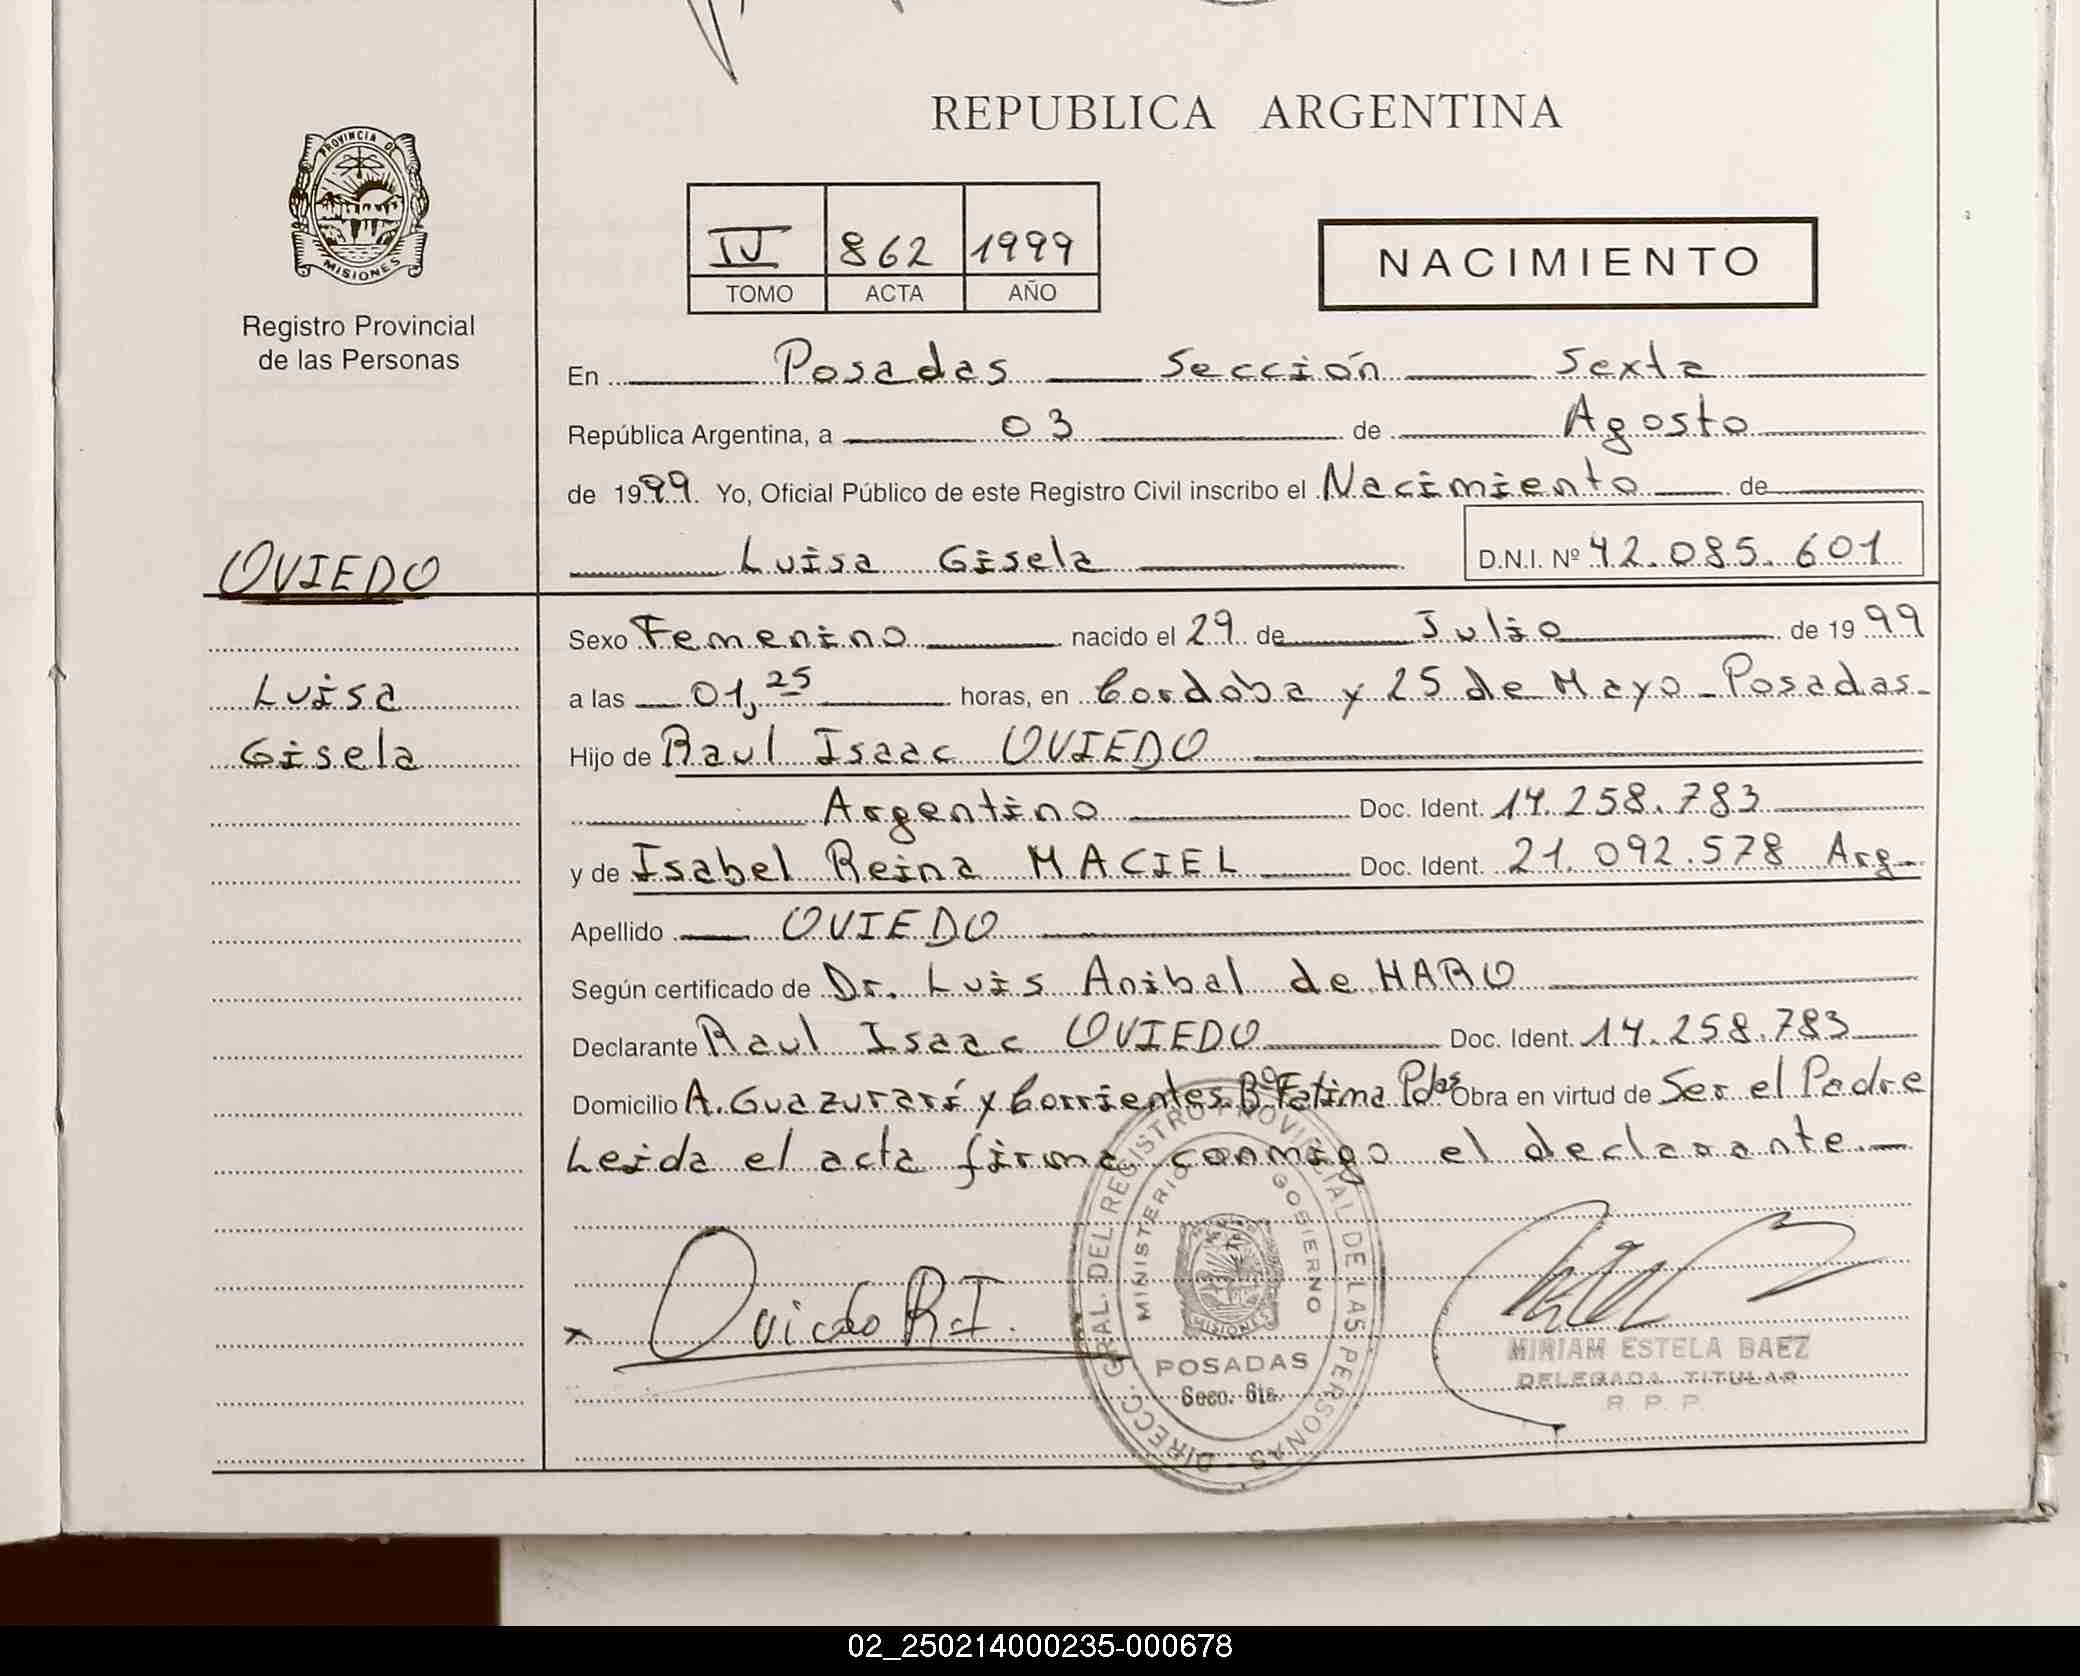 REPUBLICA ARGENTINA
PROVINCIA DE
MISIONES
Registro Provincial
de las Personas
IV 862 1999
TOMO ACTA AÑO
NACIMIENTO
En Posadas Sección Sexta
República Argentina, a 03 de Agosto
de 1999. Yo, Oficial Público de este Registro Civil inscribo el Nacimiento de
Luisa Gisela D.N.I. Nº 42.085.601
OVIEDO
Luisa
Gisela
Sexo Femenino nacido el 29 de Julio de 1999
a las 01,25 horas, en Cordoba y 25 de Mayo - Posadas-
Hijo de Raul Isaac OVIEDO
Argentino Doc. Ident. 14.258.783
y de Isabel Reina MACIEL Doc. Ident. 21.092.578 Arg-
Apellido OVIEDO
Según certificado de Dr. Luis Anibal de HARO
Declarante Raul Isaac OVIEDO Doc. Ident. 14.258.783
Domicilio A. Guazurarí y Corrientes Bº Fatima Pdas Obra en virtud de Ser el Padre
Leida el acta firma conmigo el declarante.-
x Oviedo R.I.
DIRECC. GRAL. DEL REGISTRO PROVINCIAL DE LAS PERSONAS -
MINISTERIO GOBIERNO
MISIONES
POSADAS
Secc. 6ta.
MIRIAM ESTELA BAEZ
DELEGADA TITULAR
R. P. P.
02_250214000235-000678